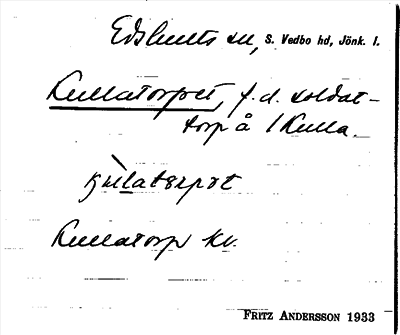 Edshults sn, S. Vedbo hd, Jönk. l.
Kullatorpet, f.d. soldat-
torp å /Kulla.
Kullatorp kv.
FRITZ ANDERSSON 1933